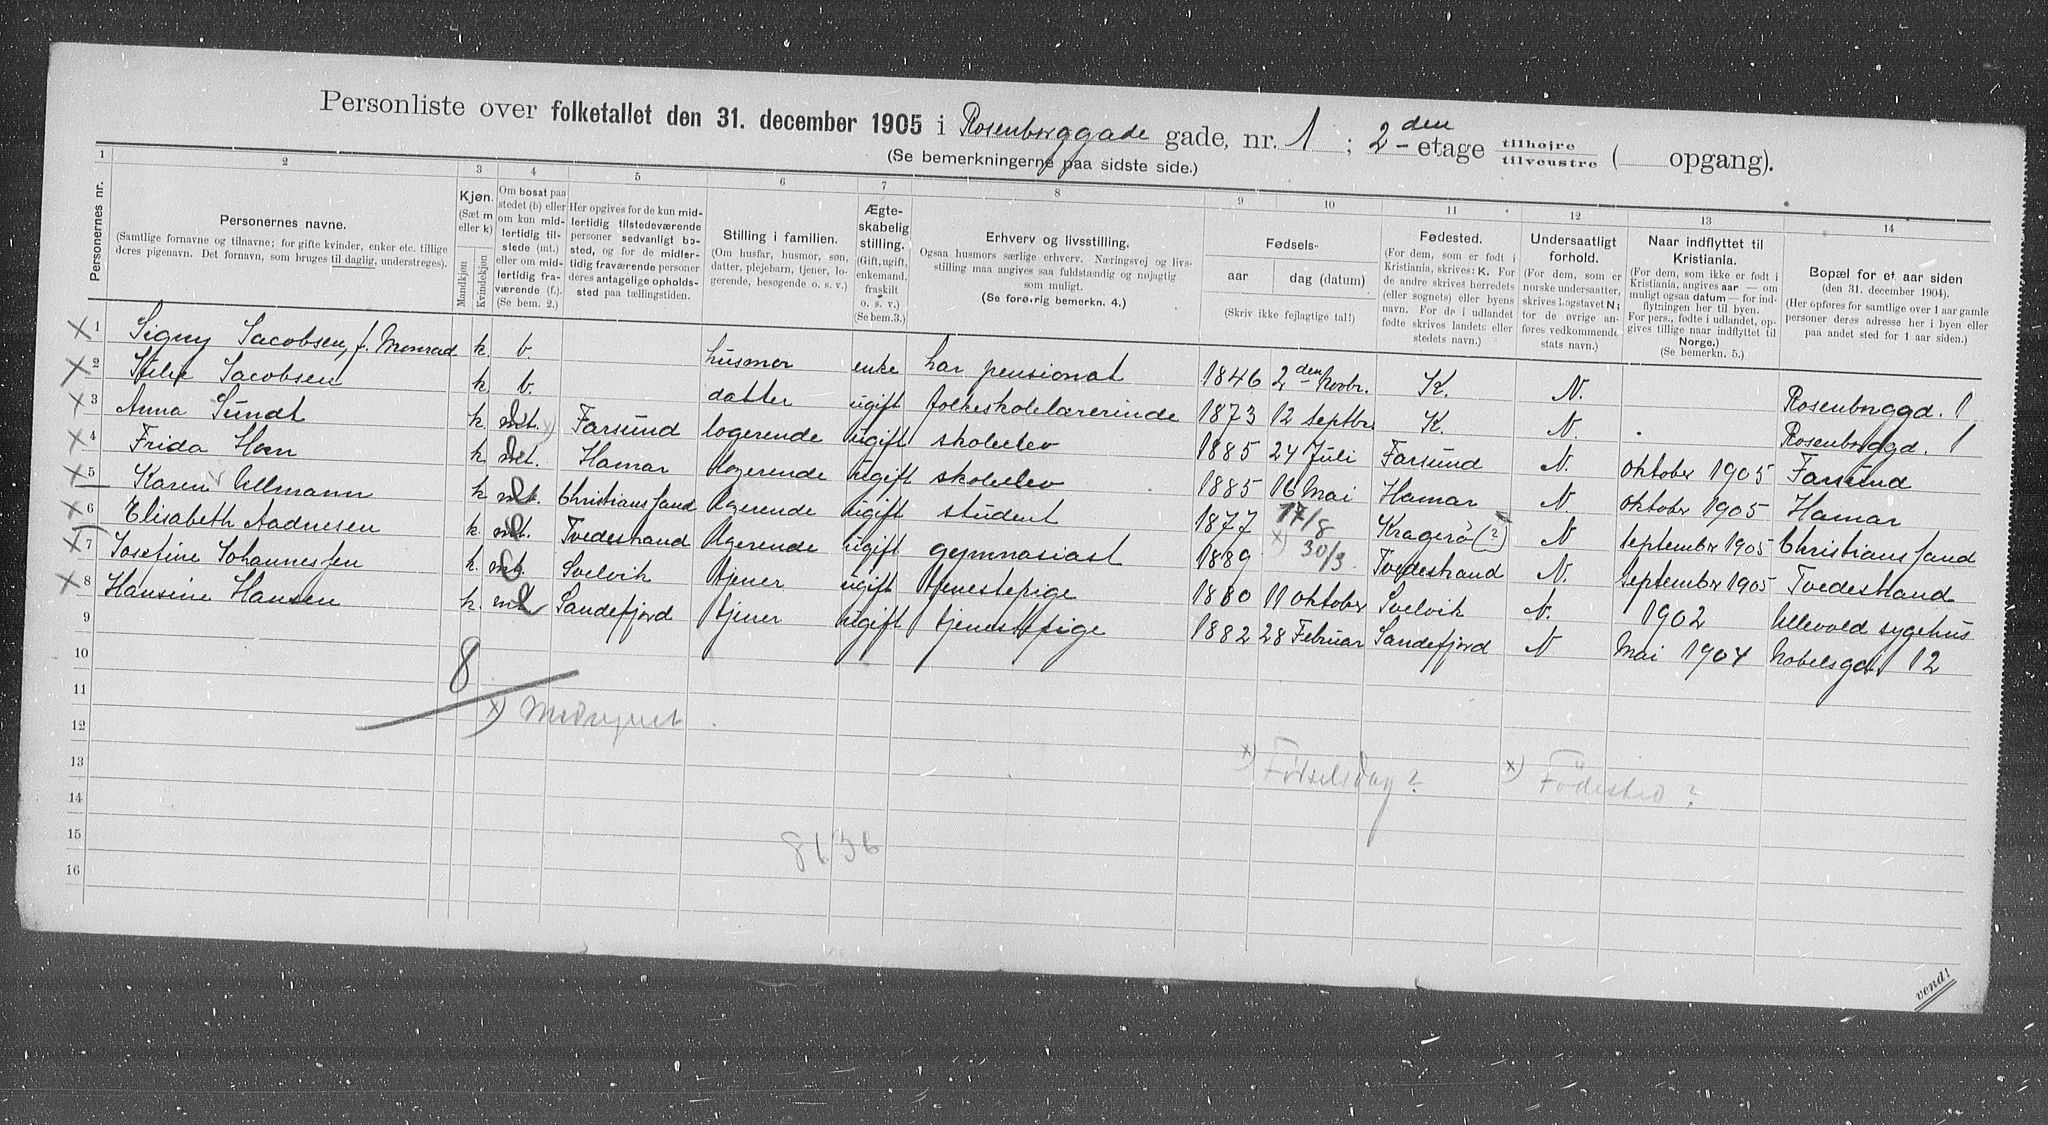 Personliste over folketallet den 31. december 1905 i Rosenborggade gade, nr. 1 ; 2den etage tilhøjre tilvenstre ( opgang).
(Se bemerkningerne paa sidste side.)
1 2 3 4 5 6 7 8 9 10 11 12 13 14
Personernes nr.
Personernes navne.
(Samtlige fornavne og tilnavne; for gifte kvinder, enker etc. tillige
deres pigenavn. Det fornavn, som bruges til daglig, understreges).
Kjøn.
(Sæt m
eller k)
Mandkjøn
Kvindekjøn
Om bosat paa
stedet (b) eller
om kun mid-
lertidig til-
stede (mt.)
eller om mid-
lertidig fra-
værende (f.).
(Se bem. 2.)
Her opgives for de kun mid-
lertidig tilstedeværende
personer sedvanligt bo-
sted, og for de midler-
tidig fraværende personer
deres antagelige opholds-
sted paa tællingstiden.
Stilling i familien.
(Om husfar, husmor, søn,
datter, plejebarn, tjener, lo-
gerende, besøgende o. s. v.)
Ægte-
skabelig
stilling.
(Gift, ugift,
enkemand,
fraskilt
o. s. v.)
(Se bem. 3.)
Erhverv og livsstilling.
Ogsaa husmors særlige erhverv. Næringsvej og livs-
stilling maa angives saa fuldstændig og nøjagtig
som muligt.
(Se forøvrig bemerkn. 4.)
Fødsels-
aar
dag (datum)
(Skriv ikke fejlagtige tal!)
Fødested.
(For dem, som er født i
Kristiania, skrives: K. For
de andre skrives herredets
(eller sognets) eller byens
navn. For de i udlandet
fødte skrives landets eller
stedets navn.)
Undersaatligt
forhold.
(For dem, som er
norske undersaatter,
skrives bogstavet N;
for de øvrige an-
føres vedkommende
stats navn.)
Naar indflyttet til
Kristiania.
(For dem, som ikke er født i
Kristiania, angives aar — om
muligt ogsaa datum — for ind-
flytningen her til byen.
For pers., fødte i udlandet, op-
gives tillige naar indflyttet til
Norge.)
(Se bemerkn. 5.)
Bopæl for et aar siden
(den 31. december 1904).
(Her opføres for samtlige over 1 aar gamle
personer deres adresse her i byen eller
paa andet sted for 1 aar siden.)
1 Signy Jacobsen, f. Monrad k. b. husmor enke har pensionat 1846 2den Novbr. K. N. Rosenborggd. 1
2 Jacobsen k b. datter ugift folkeskolelærerinde 1873 12 septbr. K. N. Rosenborggd. 1
3 Anna Sundt k mt. x) Farsund logerende ugift skoleelev 1885 24 Juli Farsund N. oktober 1905 Farsund
4 Frida Horn k mt. Hamar logerende ugift skoleelev 1885 16 Mai Hamar N. oktober 1905 Hamar
5 Karen Ullmann k mt. Christianssand logerende ugift student 1877 17/8 Kragerø (?) N september 1905 Christianssand
6 Elisabeth Aadnesen k. mt. Tvedestrand logerende ugift gymnasiast 1889 x) 30/3 Tvedestrand N. september 1905 Tvedestrand
7 Josefine Johannessen k. mt. Svelvik tjener ugift tjenestepige 1880 11 oktober Svelvik N. 1902 Ullevold sygehus
8 Hansine Hansen k. mt. Sandefjord tjener ugift tjenestepige 1882 28 Februar Sandefjord N Mai 1904 Nobelsgd. 12
9
10
8
11
12
x)
13
x) Fødselsdag? x) Fødested?
14
15
8136
16
vend!